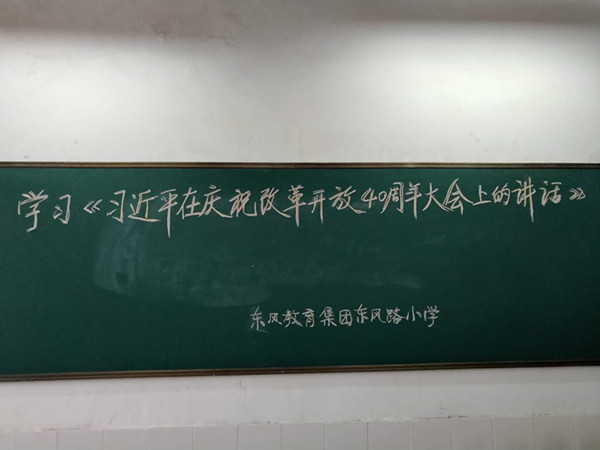 学习《习近平在庆祝改革开放40周年大会上的讲话》
东风教育集团东风路小学